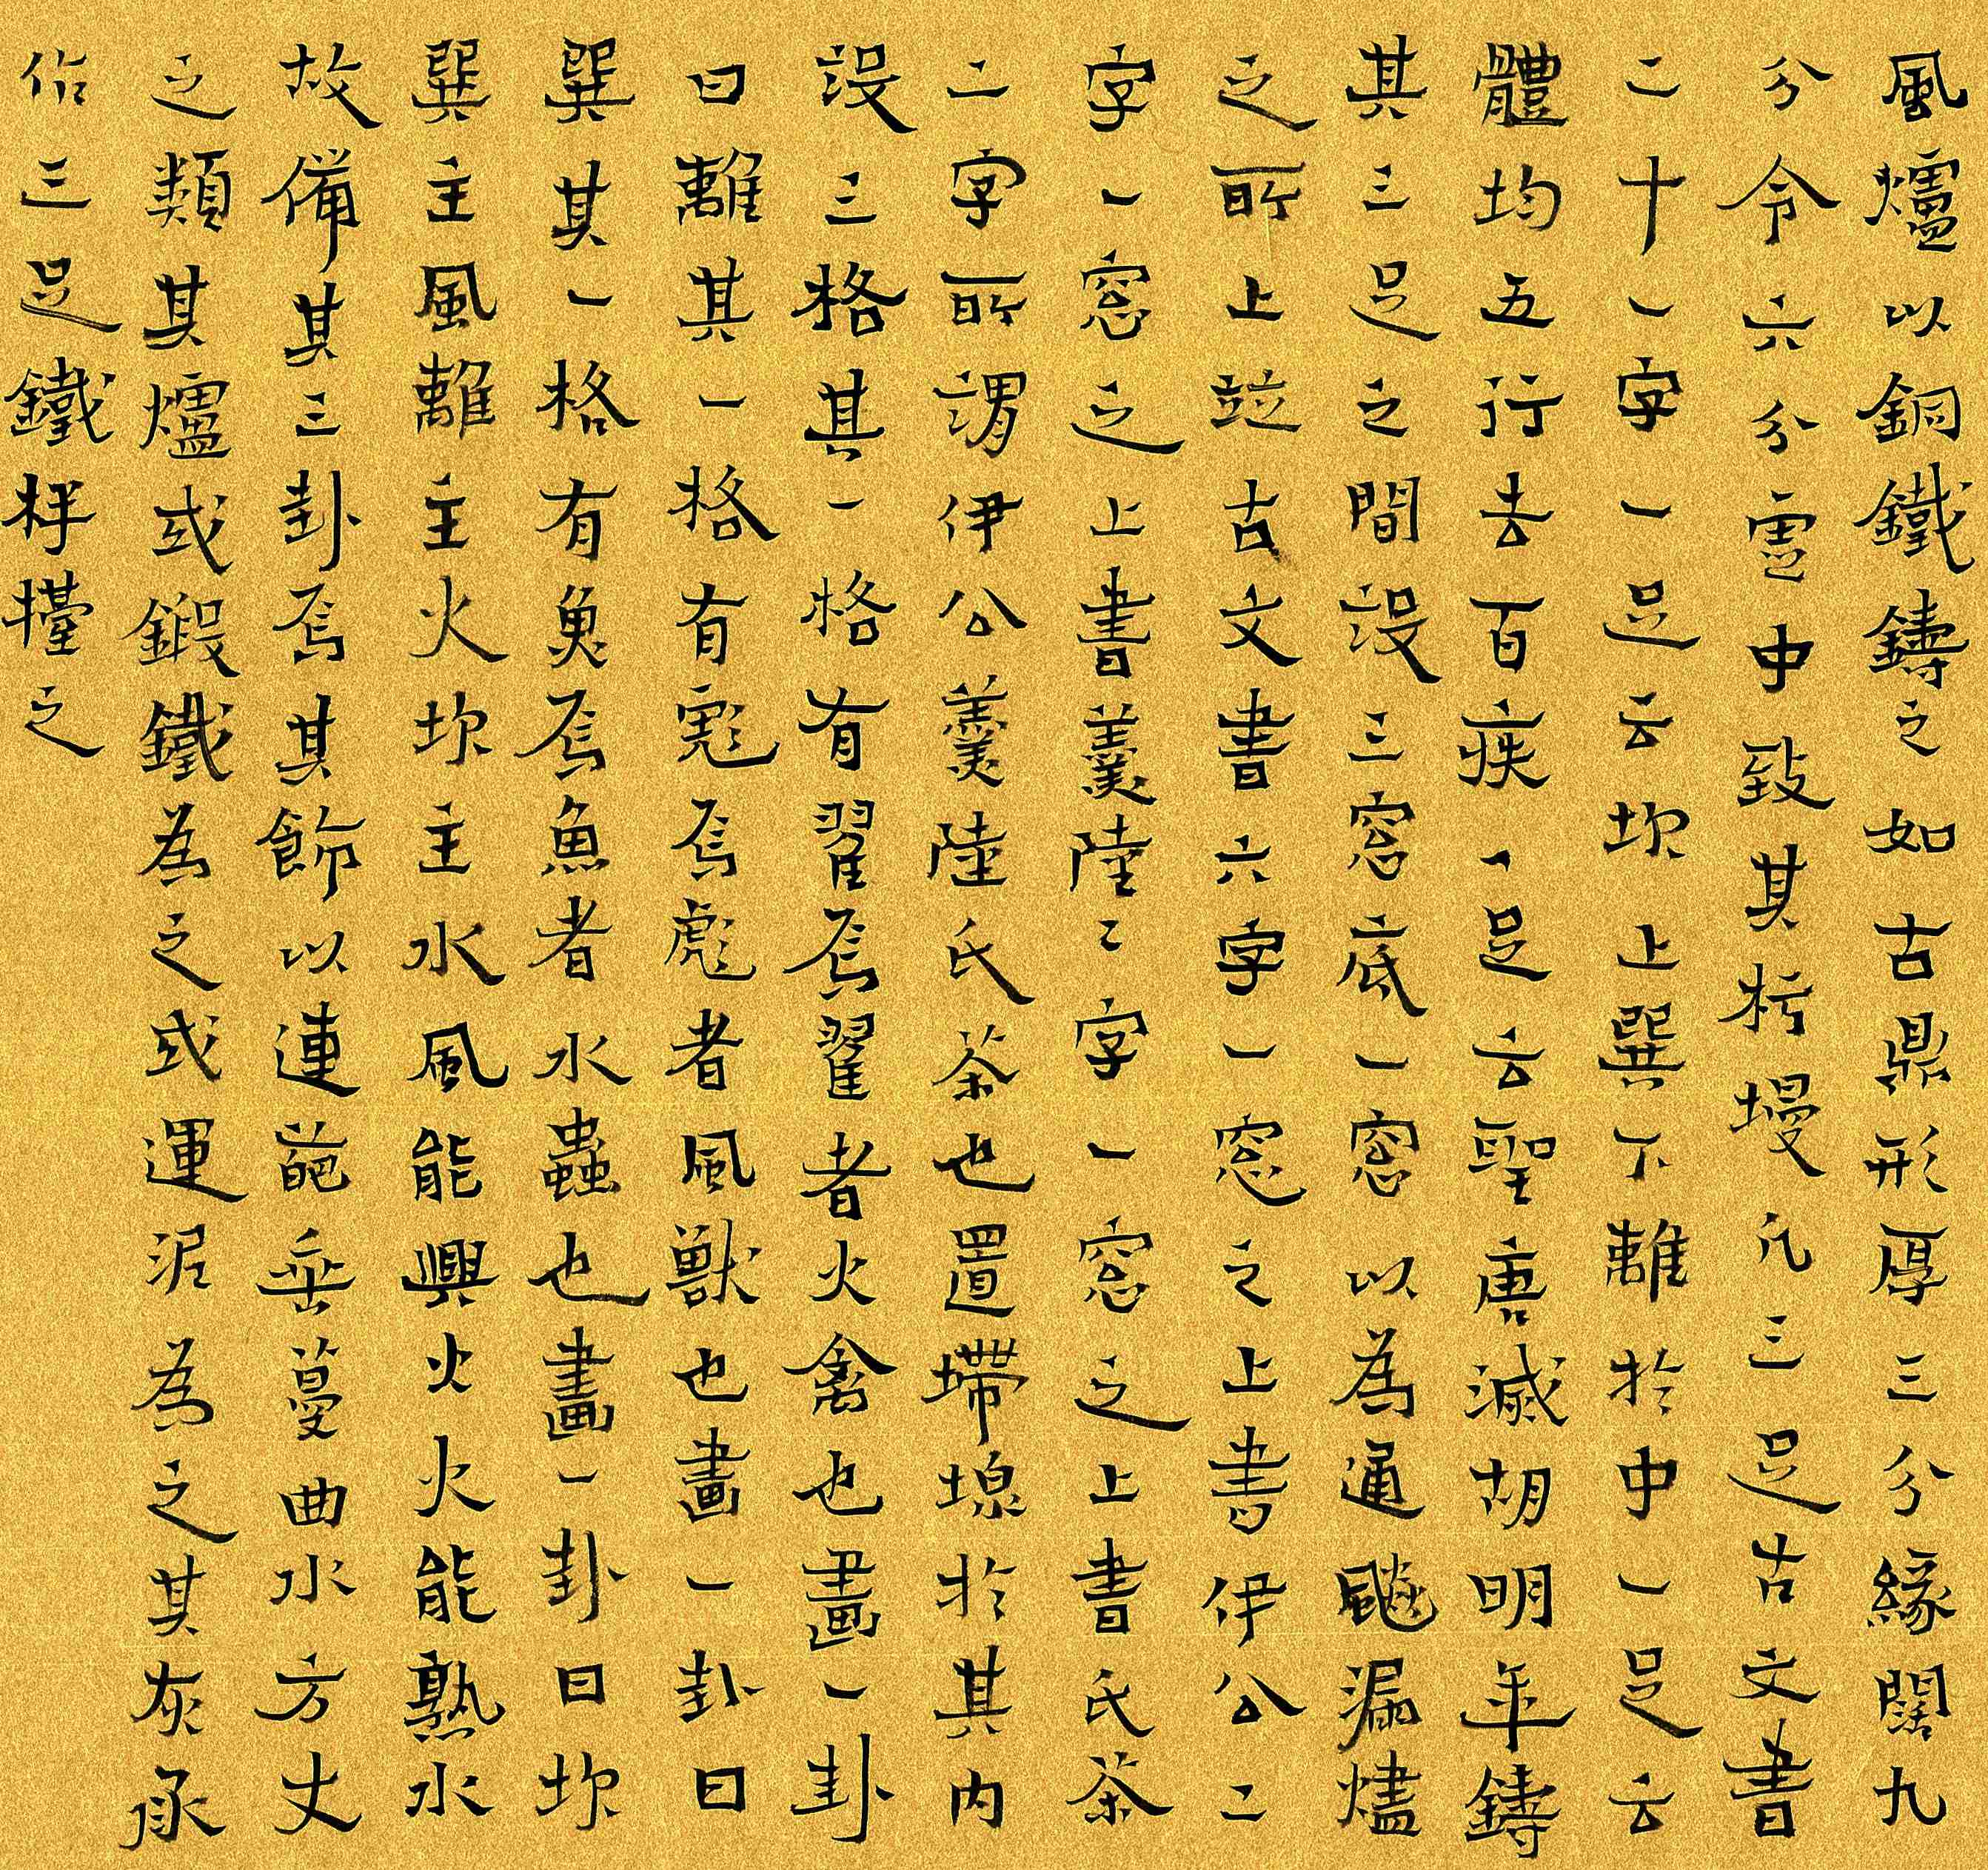 風爐以銅鐵鑄之如古鼎形厚三分緣闊九
分令六分虛中致其杇墁凡三足古文書
二十一字一足云坎上巽下離於中一足云
體均五行去百疾一足云聖唐滅胡明年鑄
其三足之間設三窓底一窓以為通飈漏燼
之所上竝古文書六字一窓之上書伊公二
字一窓之上書羹陸二字一窓之上書氏茶
二字所謂伊公羹陸氏茶也置墆㙞於其內
設三格其一格有翟焉翟者火禽也畫一卦
曰離其一格有彪焉彪者風獸也畫一卦曰
巽其一格有魚焉魚者水蟲也畫一卦曰坎
巽主風離主火坎主水風能興火火能熟水
故備其三卦焉其飾以連葩垂蔓曲水方文
之類其爐或鍛鐵為之或運泥為之其灰承
作三足鐵柈擡之